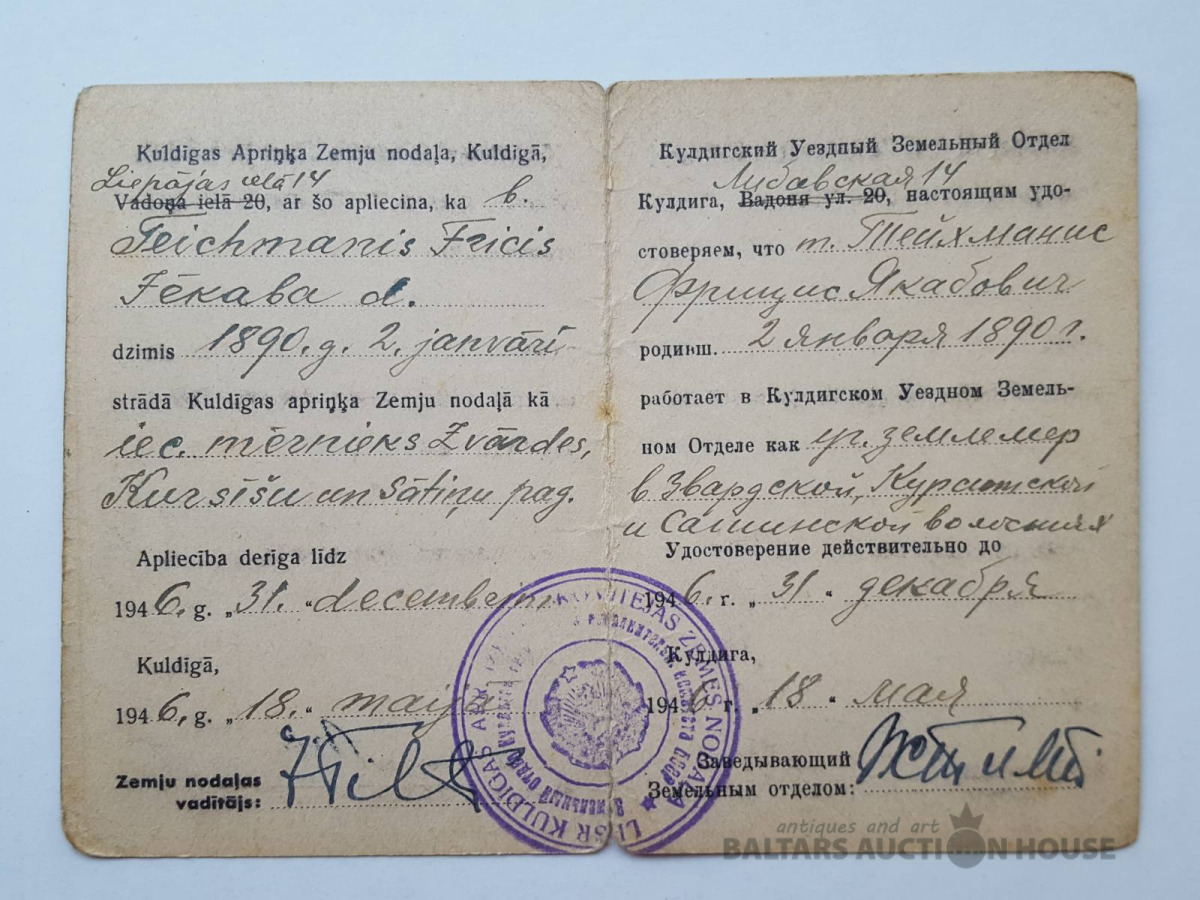 Kuldīgas Apriņķa Zemju nodaļa, Kuldīgā,
Liepājas ielā 14
Vadoņa ielā 20, ar šo apliecina, ka b.
Teichmanis Fricis
Jēkaba d.
dzimis 1890. g. 2. janvārī
strādā Kuldīgas apriņķa Zemju nodaļā kā
iec. mērnieks Zvārdes,
Kursīšu un Sātiņu pag.
Apliecība derīga līdz
1946. g. „31.“ decembrim
Kuldīgā,
1946. g. „18.“ maijā
Zemju nodaļas
vadītājs:
Кулдигский Уездный Земельный Отдел
Либавская 14
Кулдига, Вадоня ул. 20, настоящим удо-
стоверяем, что т. Тейхманис
Фрицис Якабович
родивш. 2 января 1890 г.
работает в Кулдигском Уездном Земель-
ном Отделе как уч. землемер
в Звардской, Курситской
и Сатинской волостях
Удостоверение действительно до
1946. г. „31“ декабря
Кулдига,
1946 г. „18“ мая
Заведывающий
Земельным отделом:
KULDĪGAS APR. KOMITEJAS ZEMES NODAĻA
antiques and art
BALTARS AUCTION HOUSE